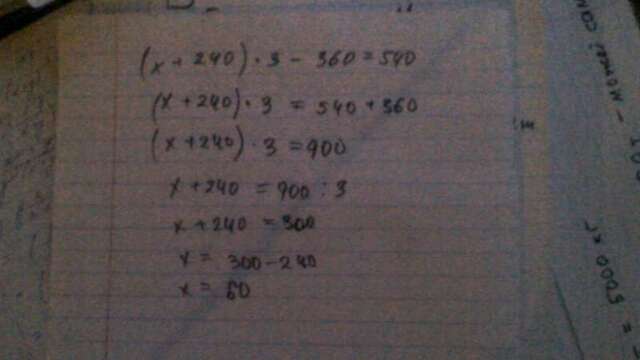 (x + 240) · 3 - 360 = 540
(x + 240) · 3 = 540 + 360
(x + 240) · 3 = 900
x + 240 = 900 : 3
x + 240 = 300
x = 300 - 240
x = 60
= 5000 кг